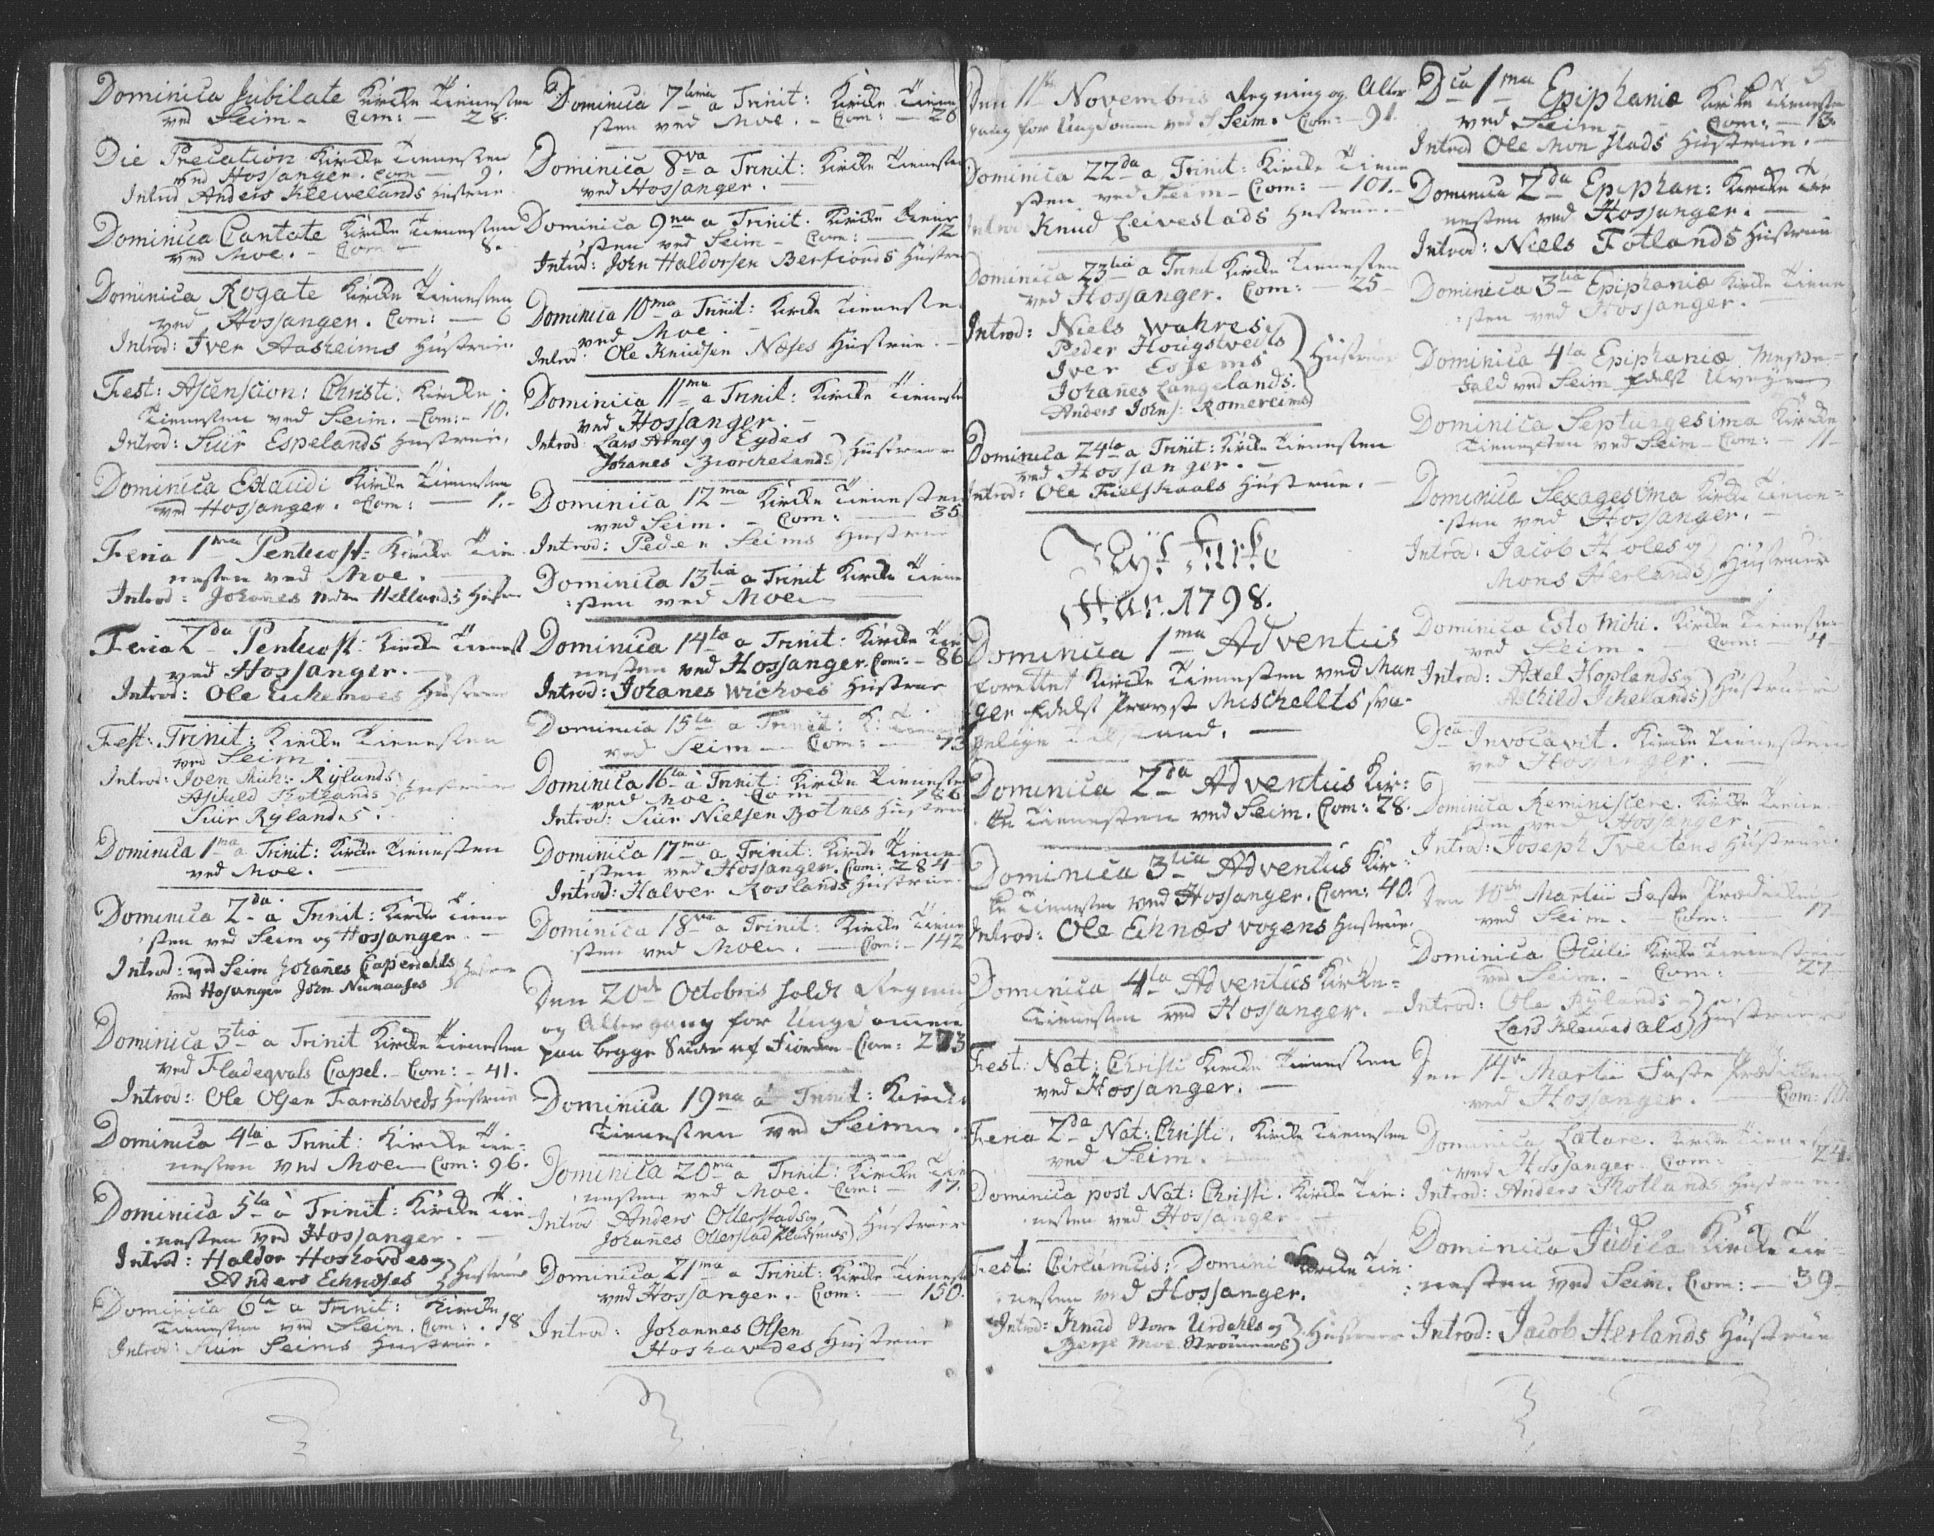 Dominica Jubilate Kirke Tienesten
ved Seim - Com: - 28.
Die Precation Kirke Tienesten
ved Hossanger. Com - 9.
Introd Anders Kleivelands Hustrue
Dominica Cantate Kirke Tienesten
ved Moe. - Com - 8.
Dominica Rogate Kirke Tienesten
ved Hossanger. Com: - 6
Introd: Iver Aasheims Hustrue.
Fest: Ascenscion: Christi: Kirke
Tienesten ved Seim. - Com: - 10.
Introd: Siur Espelands Hustrue.
Dominica Exaudi Kirke Tienesten
ved Hossanger. Com: - 1.
Feria 1ma Pentecost: Kirke Tie
nesten ved Moe.
Introd: Johanes Hellands Hustrue
Feria 2da Pentecost: Kirke Tienest
ved Hossanger. -
Introd: Ole Hustrue
Fest: Trinit: Kirke Tienesten
ved Seim.
Introd: Joen Mich: Rylands
Aschild Hustruer
Siur Rylands.
Dominica 1ma a Trinit: Kirke Tienesten
ved Moe.
Dominica 2da a Trinit: Kirke Tiene
sten ved Seim og Hossanger. -
Introd: ved Seim Johanes
ved Hosanger John
Dominica 3tia a Trinit Kirke Tienesten
ved Fladeqvals Capel. - Com: - 41.
Introd: Ole Olsen Farestveds Hustrue
Dominica 4ta a Trinit: Kirke Tie-
nesten ved Moe - Com: 96.
Dominica 5ta a Trinit: Kirke Tie-
nesten ved Hossanger. -
Introd: Haldor Hoshovdes og
Anders Echnæses Hustruer
Dominica 6ta a Trinit: Kirke
Tienesten ved Seim. Com: . 18
Introd: Siur Seims Hustrue.
Dominica 7tima a Trinit: Kirke Tiene
sten ved Moe. - Com: - 20
Dominica 8va a Trinit: Kirke Tienesten
ved Hossanger. -
Dominica 9na a Trinit. Kirke Tiene
sten ved Seim - Com: - 12
Introd: John Haldorsen Hustrue
Dominica 10ma a Trinit: Kirke Tieneste
ved Moe. -
Introd: Ole Knudsen Næses Hustrue. -
Dominica 11ma a Trinit: Kirke Tieneste
ved Hossanger. -
Introd: Lars Eydes
Johanes Hustruer
Dominica 12ma Kirke Tienesten
ved Seim. - Com: - 35
Introd: Peder Seims Hustrue
Dominica 13tia a Trinit Kirke Tiene
sten ved Moe
Dominica 14ta a Trinit: Kirke Tie
nesten ved Hossanger. Com: - 86
Introd: Johanes Hustrue
Dominica 15ta a Trinit: K: T
ved Seim - Com: - 73
Dominica 16ta a Trinit: Kirke Tieneste
ved Moe Com 186
Introd: Siur Nielsen Botnes Hustrue
Dominica 17ma a Trinit: Kirke Tiene
sten ved Hossanger. Com: - 284
Introd: Halver Roslands Hustrue.
Dominica 18va a Trinit: Kirke Tiene
sten ved Moe. - Com: - 142
Den 20de Octobris holdt
og Altergang for Ungdommen
paa begge Sider af Fiorden - Com: 273
Dominica 19na a Trinit: Kirke
Tienesten ved Seim.
Dominica 20ma a Trinit: Kirke Tie
nesten ved Moe. Com: - 17.
Introd Anders Ollerstads og
Johanes Ollerstad Hustruer
Dominica 21ma a Trinit: Kirke Tieneste
ved Hossanger. - Com: - 150
Introd: Johannes Olsen
Hoshovdes Hustrue
Den 11te Novembris og Alter
gang for Ungdomen ved Seim. Com: - 91.
Dominica 22da a Trinit: Kirke Tiene
sten ved Seim - Com: - 101.
Introd Knud Leivestads Hustrue. -
Dominica 23tia a Trinit Kirke Tienesten
ved Hossanger. Com: - 25 -
Introd: Niels
Peder Hougstveds
Iver Hustruer
Johanes Langelands.
Anders Johns: Romereims
Dominica 24ta a Trinit: Kirke Tienesten
ved Hossanger. -
Introd: Ole Hustrue. -
Nyt Kirke
Aar. 1798.
Dominica 1ma Adventus
forettet Kirke Tienesten ved Man
ger Edelst Provst Mischellts sva-
gelige Tilstand. -
Dominica 2da Adventus Kir-
ke Tienesten ved Seim. Com: 28.
Dominica 3tia Adventus Kir-
ke Tienesten ved Hossanger. Com: 40.
Introd: Ole Echnæs vogens Hustrue.
Dominica 4ta Adventus Kirke-
Tienesten ved Hossanger. -
Fest: Nat: Christi Kirke Tienesten
ved Hossanger. -
Feria 2da Nat: Christi. Kirke Tienesten
ved Seim.
Dominica post Nat: Christi. Kirke Tie:
nesten ved Hossanger -
Fest: Circumcis: Domini Kirke Tie
nesten ved Hossanger.
Introd: Knud Store Urdahls og
Moe Strømmens Hustruer
5
Dca 1ma Epiphaniæ Kirke Tieneste
ved Seim - Com: - 13.
Introd Ole Monstads Hustrue. -
Dominica 2da Epiphan: Kirke Tie
nesten ved Hossanger. -
Introd: Niels Fotlands Hustrue
Dominica 3tia Epiphaniæ Kirke Tiene
sten ved Hossanger. -
Dominica 4ta Epiphaniæ Messe-
fald ved Seim Edelst Uveyr
Dominica Septuagesima Kirke
Tienesten ved Seim - Com: - 11 -
Dominica Sexagesima Kirke Tiene-
sten ved Hossanger. -
Introd: Jacob Holes og
Mons Herlands Hustruer
Dominica Esto Mihi. Kirke Tienesten
ved Seim. - Com: 4
Introd: Axel Hoplands og
Aschild Ichelands Hustruer
Dca Invocavit. Kirke Tienesten
ved Hosanger. -
Dominica Reminiscere. Kirke Tiene
sten ved Hossanger.
Introd: Joseph Tveitens Hustrue.
Den 10de Martii Faste Prædicken
ved Seim. - Com: 17
Dominica Oculi Kirke Tienesten
ved Seim. - Com: 27.
Introd: Ole Rylands og
Lars Hustruer
Den 14de Martii Faste Prædicken
ved Hossanger. - Com: 10
Dominica Lætare. Kirke Tiene
ved Hossanger Com: 24.
Introd: Anders Hustrue.
Dominica Judica Kirke Tie-
nesten ved Seim. Com: - 39 -
Introd: Jacob Herlands Hustrue